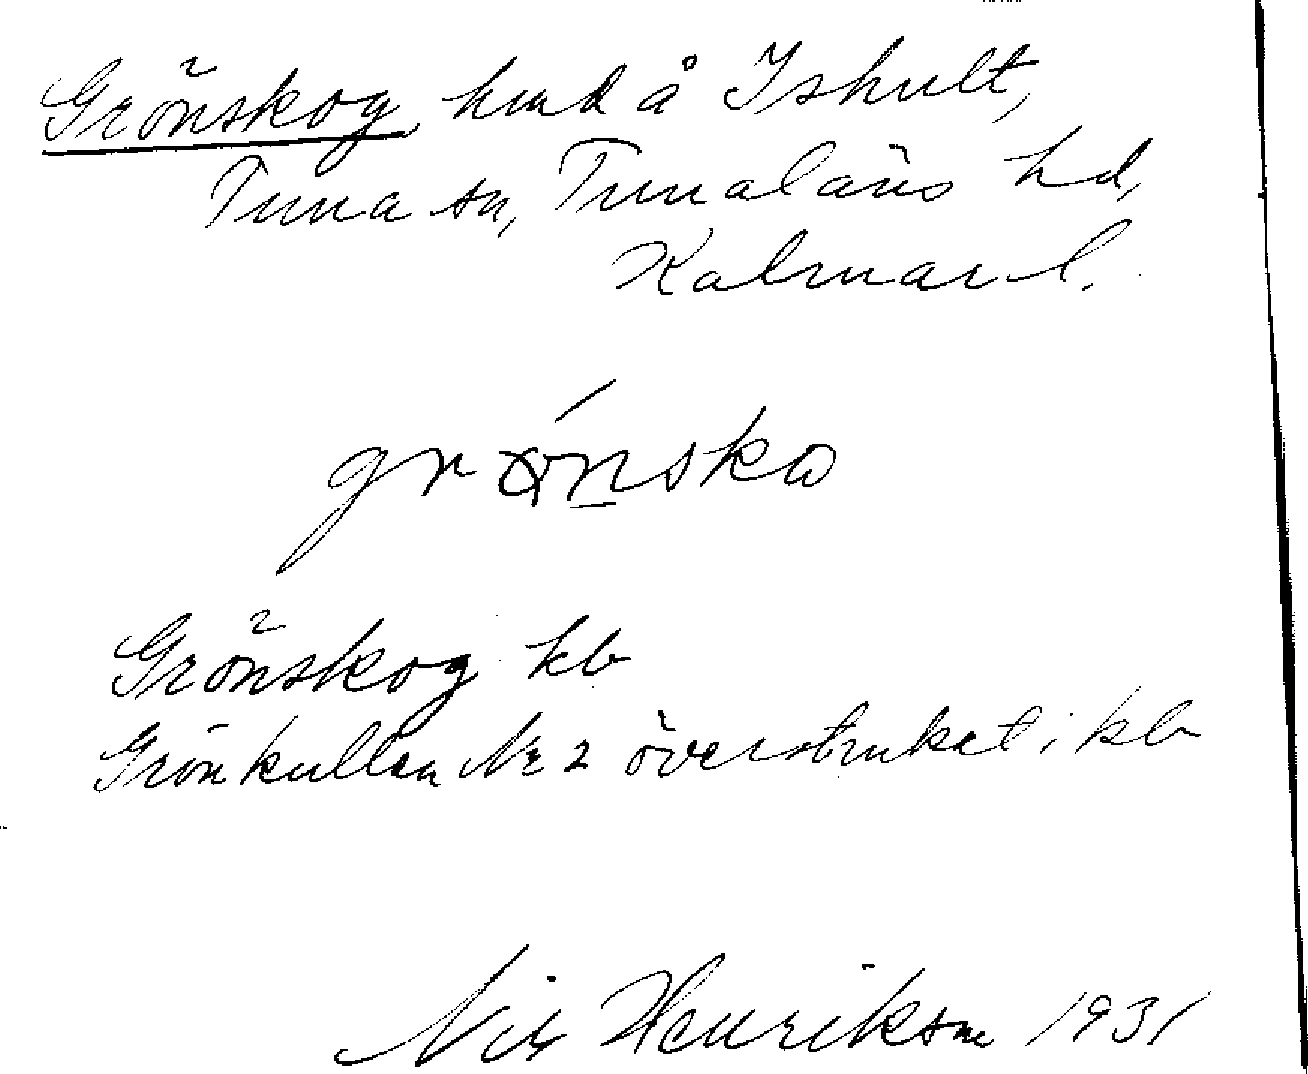 Grönskog, hmd å Ishult,
Tuna sn, Tunaläns hd,
Kalmar l.
grønsko
Grönskog kb
Grönkullen Nr 2 överstruket i kb
Nils Henrikson 1931